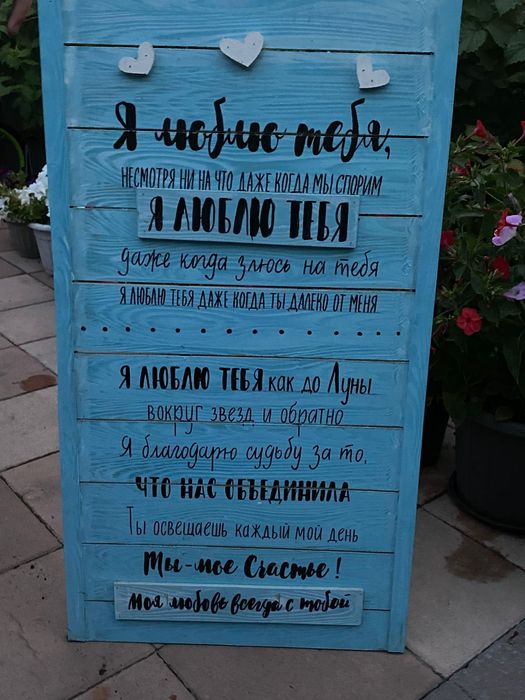 Я люблю тебя,
НЕСМОТРЯ НИ НА ЧТО ДАЖЕ КОГДА МЫ СПОРИМ
Я ЛЮБЛЮ ТЕБЯ
даже когда злюсь на тебя
Я ЛЮБЛЮ ТЕБЯ ДАЖЕ КОГДА ТЫ ДАЛЕКО ОТ МЕНЯ
Я ЛЮБЛЮ ТЕБЯ как до Луны
вокруг звезд и обратно
Я благодарю судьбу за то,
ЧТО НАС ОБЪЕДИНИЛА
Ты освещаешь каждый мой день
Ты-мое Счастье!
Моя любовь всегда с тобой